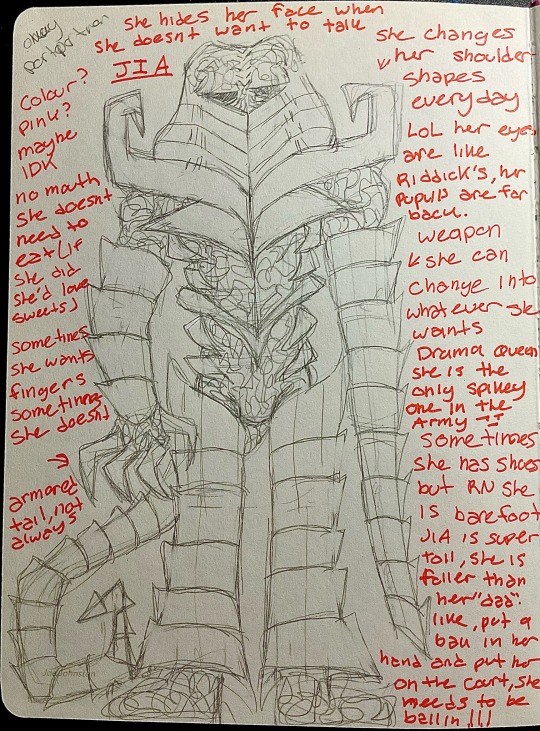 she hides her face when
she doesnt want to talk
JIA
Colour?
Pink?
maybe
IDK
no mouth
she doesnt
need to
eat (if
she did
she'd love
sweets)
sometimes
she wants
fingers
sometimes
she doesnt
armored
tail, not
always
she changes
her shoulder
shapes
everyday
LOL her eyes
are like
Riddick's, her
pupils are far
back.
weapon
she can
change into
whatever she
wants
Drama Queen
she is the
only spikey
one in the
Army
sometimes
she has shoes
but RN she
is barefoot
JIA is super
tall, she is
taller than
her "dad".
like, put a
ball in her
hand and put her
on the court, she
needs to be
ballin!!!